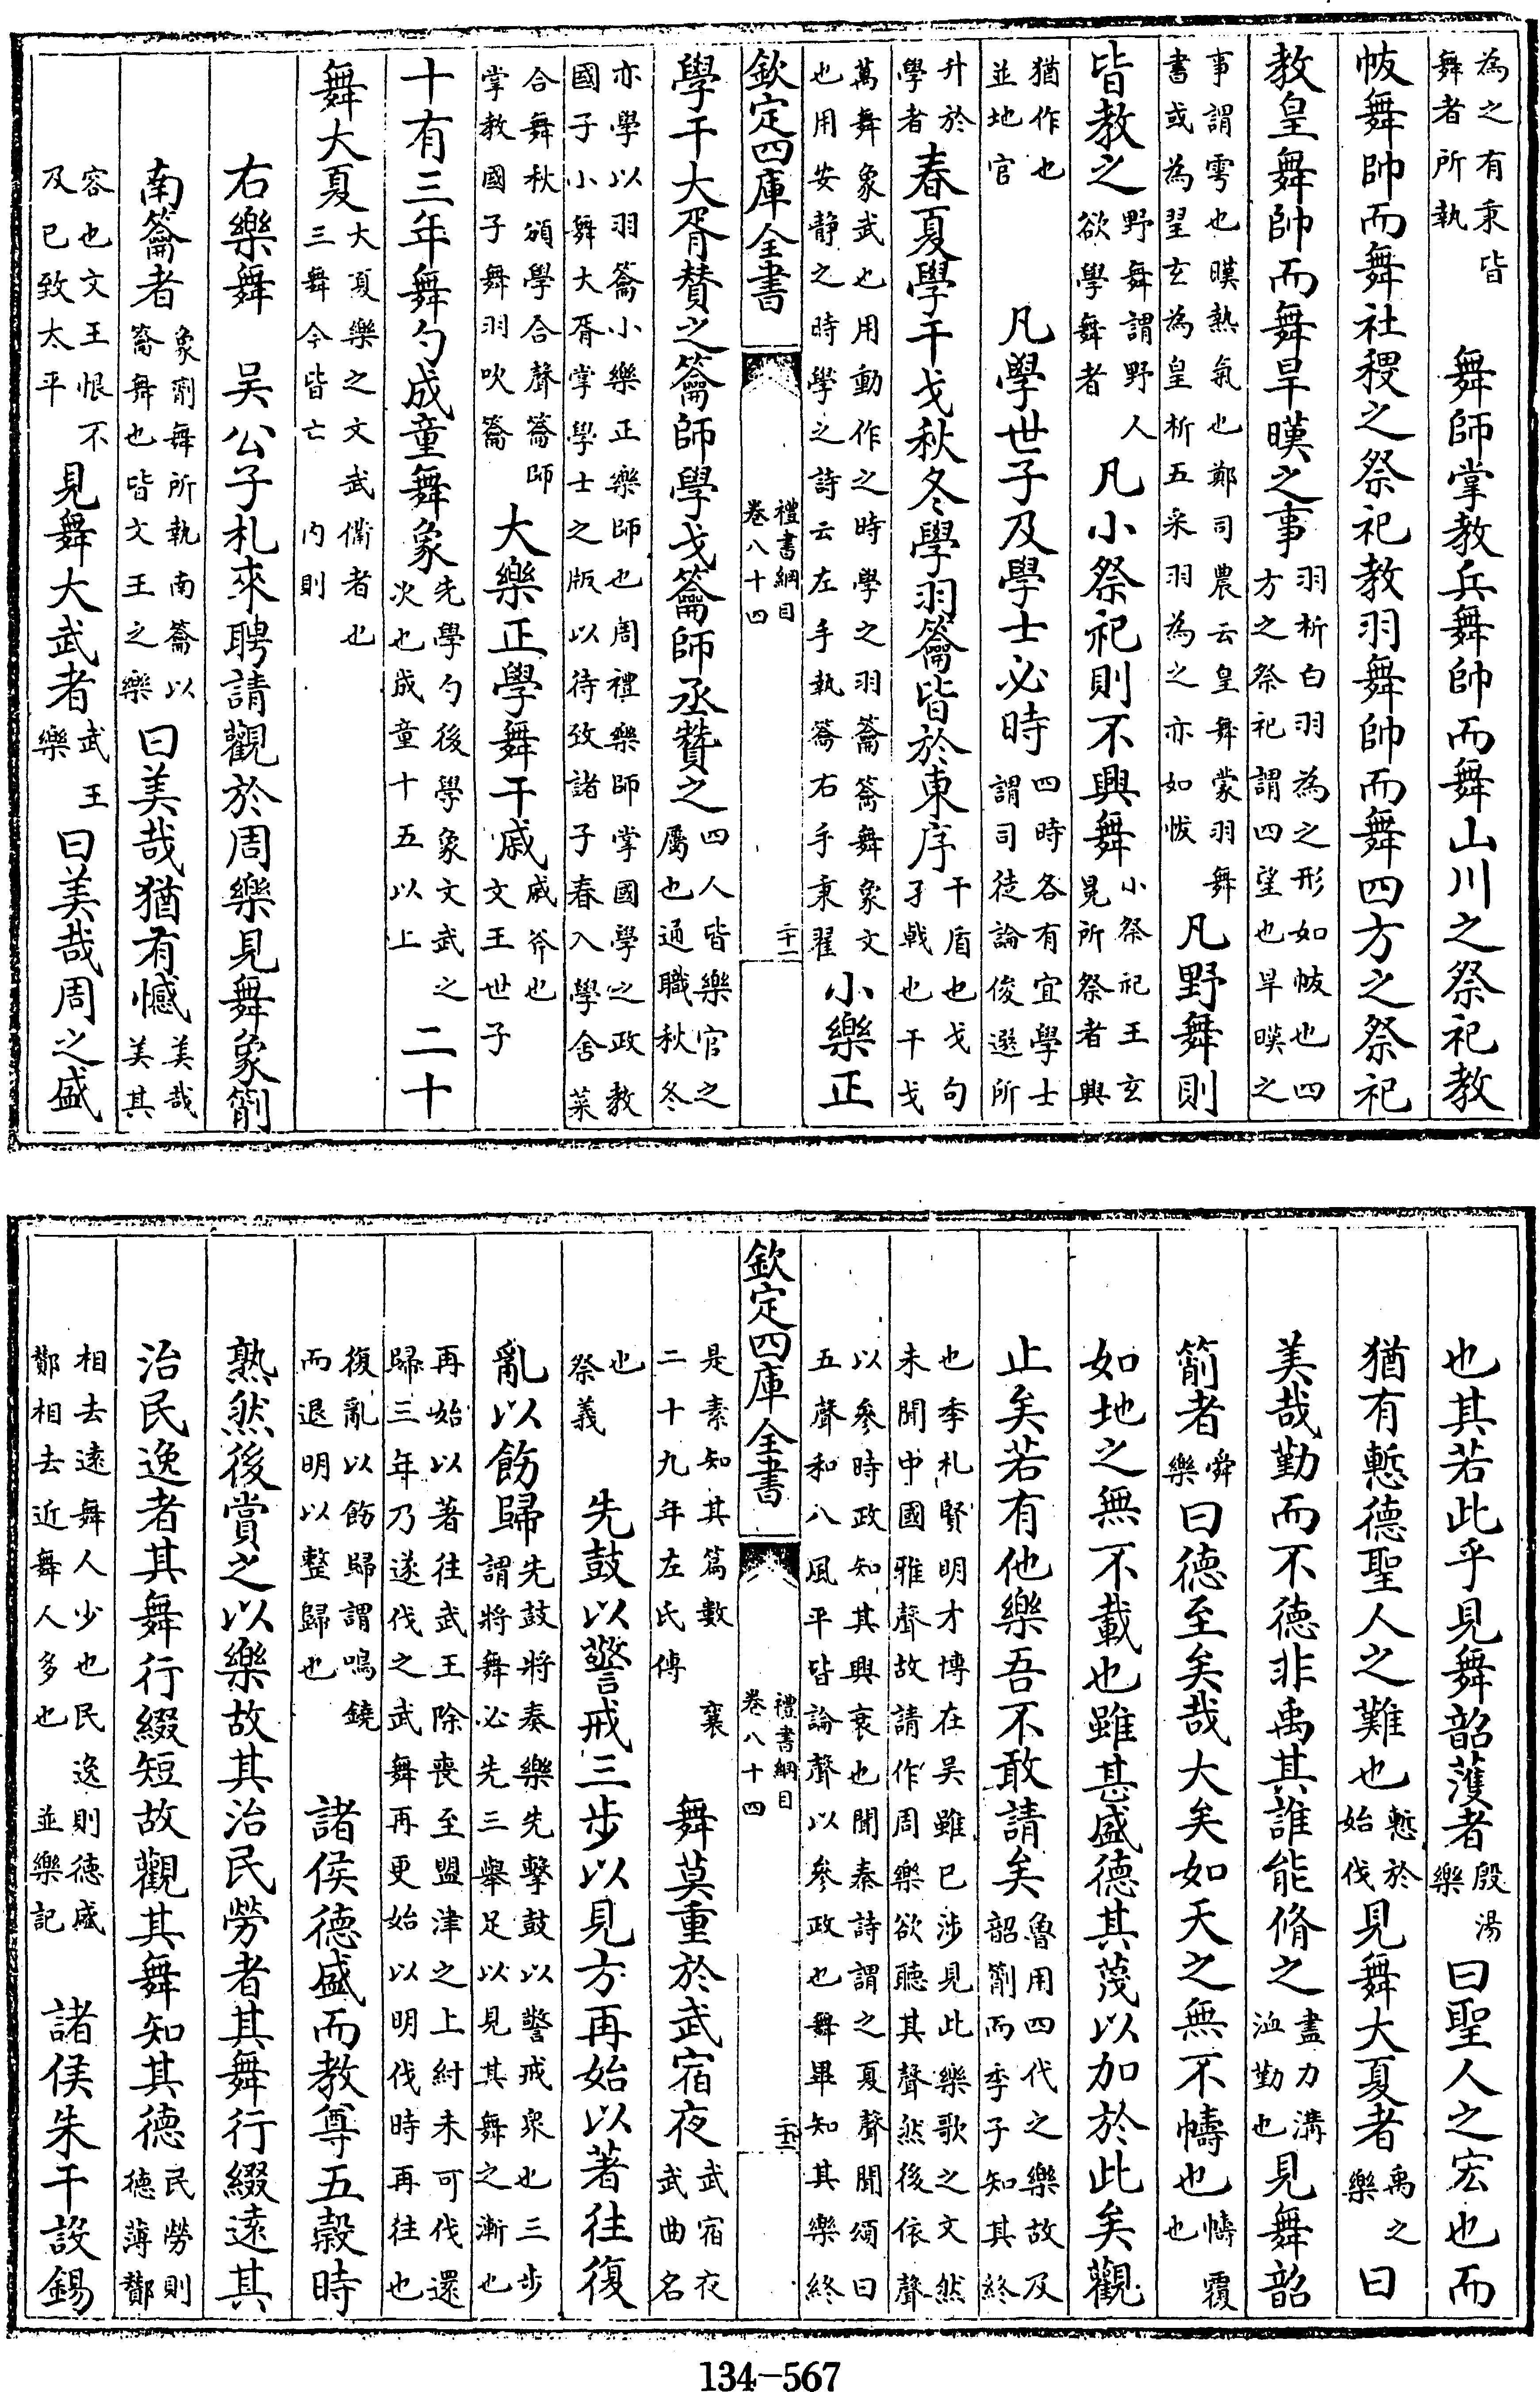 為之有秉皆舞者所執 舞師掌教兵舞帥而舞山川之祭祀教
帗舞帥而舞社稷之祭祀教羽舞帥而舞四方之祭祀
教皇舞帥而舞旱暵之事羽析白羽為之形如帗也四方之祭祀謂四望也旱暵之
事謂雩也暵熱氣也鄭司農云皇舞蒙羽舞書或為䍿玄為皇析五采羽為之亦如帗 凡野舞則
皆教之野舞謂野人欲學舞者 凡小祭祀則不興舞小祭祀王玄冕所祭者興
猶作也並地官 凡學世子及學士必時四時各有宜學士謂司徒論俊選所
升於學者春夏學干戈秋冬學羽籥皆於東序干盾也戈句孑戟也干戈
萬舞象武也用動作之時學之羽籥籥舞象文也用安靜之時學之詩云左手執籥右手秉翟 小樂正
欽定四庫全書 禮書綱目卷八十四 二十一
學干大胥贊之籥師學戈籥師丞贊之四人皆樂官之屬也通職秋冬
亦學以羽籥小樂正樂師也周禮樂師掌國學之政教國子小舞大胥掌學士之版以待致諸子春入學舍菜
合舞秋頒學合聲籥師掌教國子舞羽吹籥 大樂正學舞干戚戚斧也文王世子
十有三年舞勺成童舞象先學勺後學象文武之次也成童十五以上 二十
舞大夏大夏樂之文武備者也三舞今皆亡 內則
右樂舞 吳公子札來聘請觀於周樂見舞象箾
南籥者象箾舞所執南籥以籥舞也皆文王之樂曰美哉猶有憾美哉美其
容也文王恨不及已致太平見舞大武者武王樂曰美哉周之盛
也其若此乎見舞韶濩者殷湯樂曰聖人之宏也而
猶有慙德聖人之難也慙於始伐見舞大夏者禹之樂曰
美哉勤而不德非禹其誰能脩之盡力溝洫勤也見舞韶
箾者舜樂曰德至矣哉大矣如天之無不幬也幬覆也
如地之無不載也雖甚盛德其蔑以加於此矣觀
止矣若有他樂吾不敢請矣魯用四代之樂故及韶箾而季子知其終
也季札賢明才博在吳雖已涉見此樂歌之文然未聞中國雅聲故請作周樂欲聽其聲然後依聲
以參時政知其興衰也聞秦詩謂之夏聲聞頌曰五聲和八風平皆論聲以參政也舞畢知其樂終
欽定四庫全書 禮書綱目卷八十四 二十二
是素知其篇數 襄二十九年左氏傳 舞莫重於武宿夜武宿夜武曲名
也祭義 先鼓以警戒三步以見方再始以著往復
亂以飭歸先鼓將奏樂先擊鼓以警戒衆也三步謂將舞必先三舉足以見其舞之漸也
再始以著往武王除喪至盟津之上紂未可伐還歸三年乃遂伐之武舞再更始以明伐時再往也
復亂以飭歸謂鳴鐃而退明以整歸也 諸侯德盛而教尊五穀時
熟然後賞之以樂故其治民勞者其舞行綴遠其
治民逸者其舞行綴短故觀其舞知其德民勞則德薄酇
相去遠舞人少也民逸則德盛酇相去近舞人多也 並樂記 諸侯朱干設錫
134-567